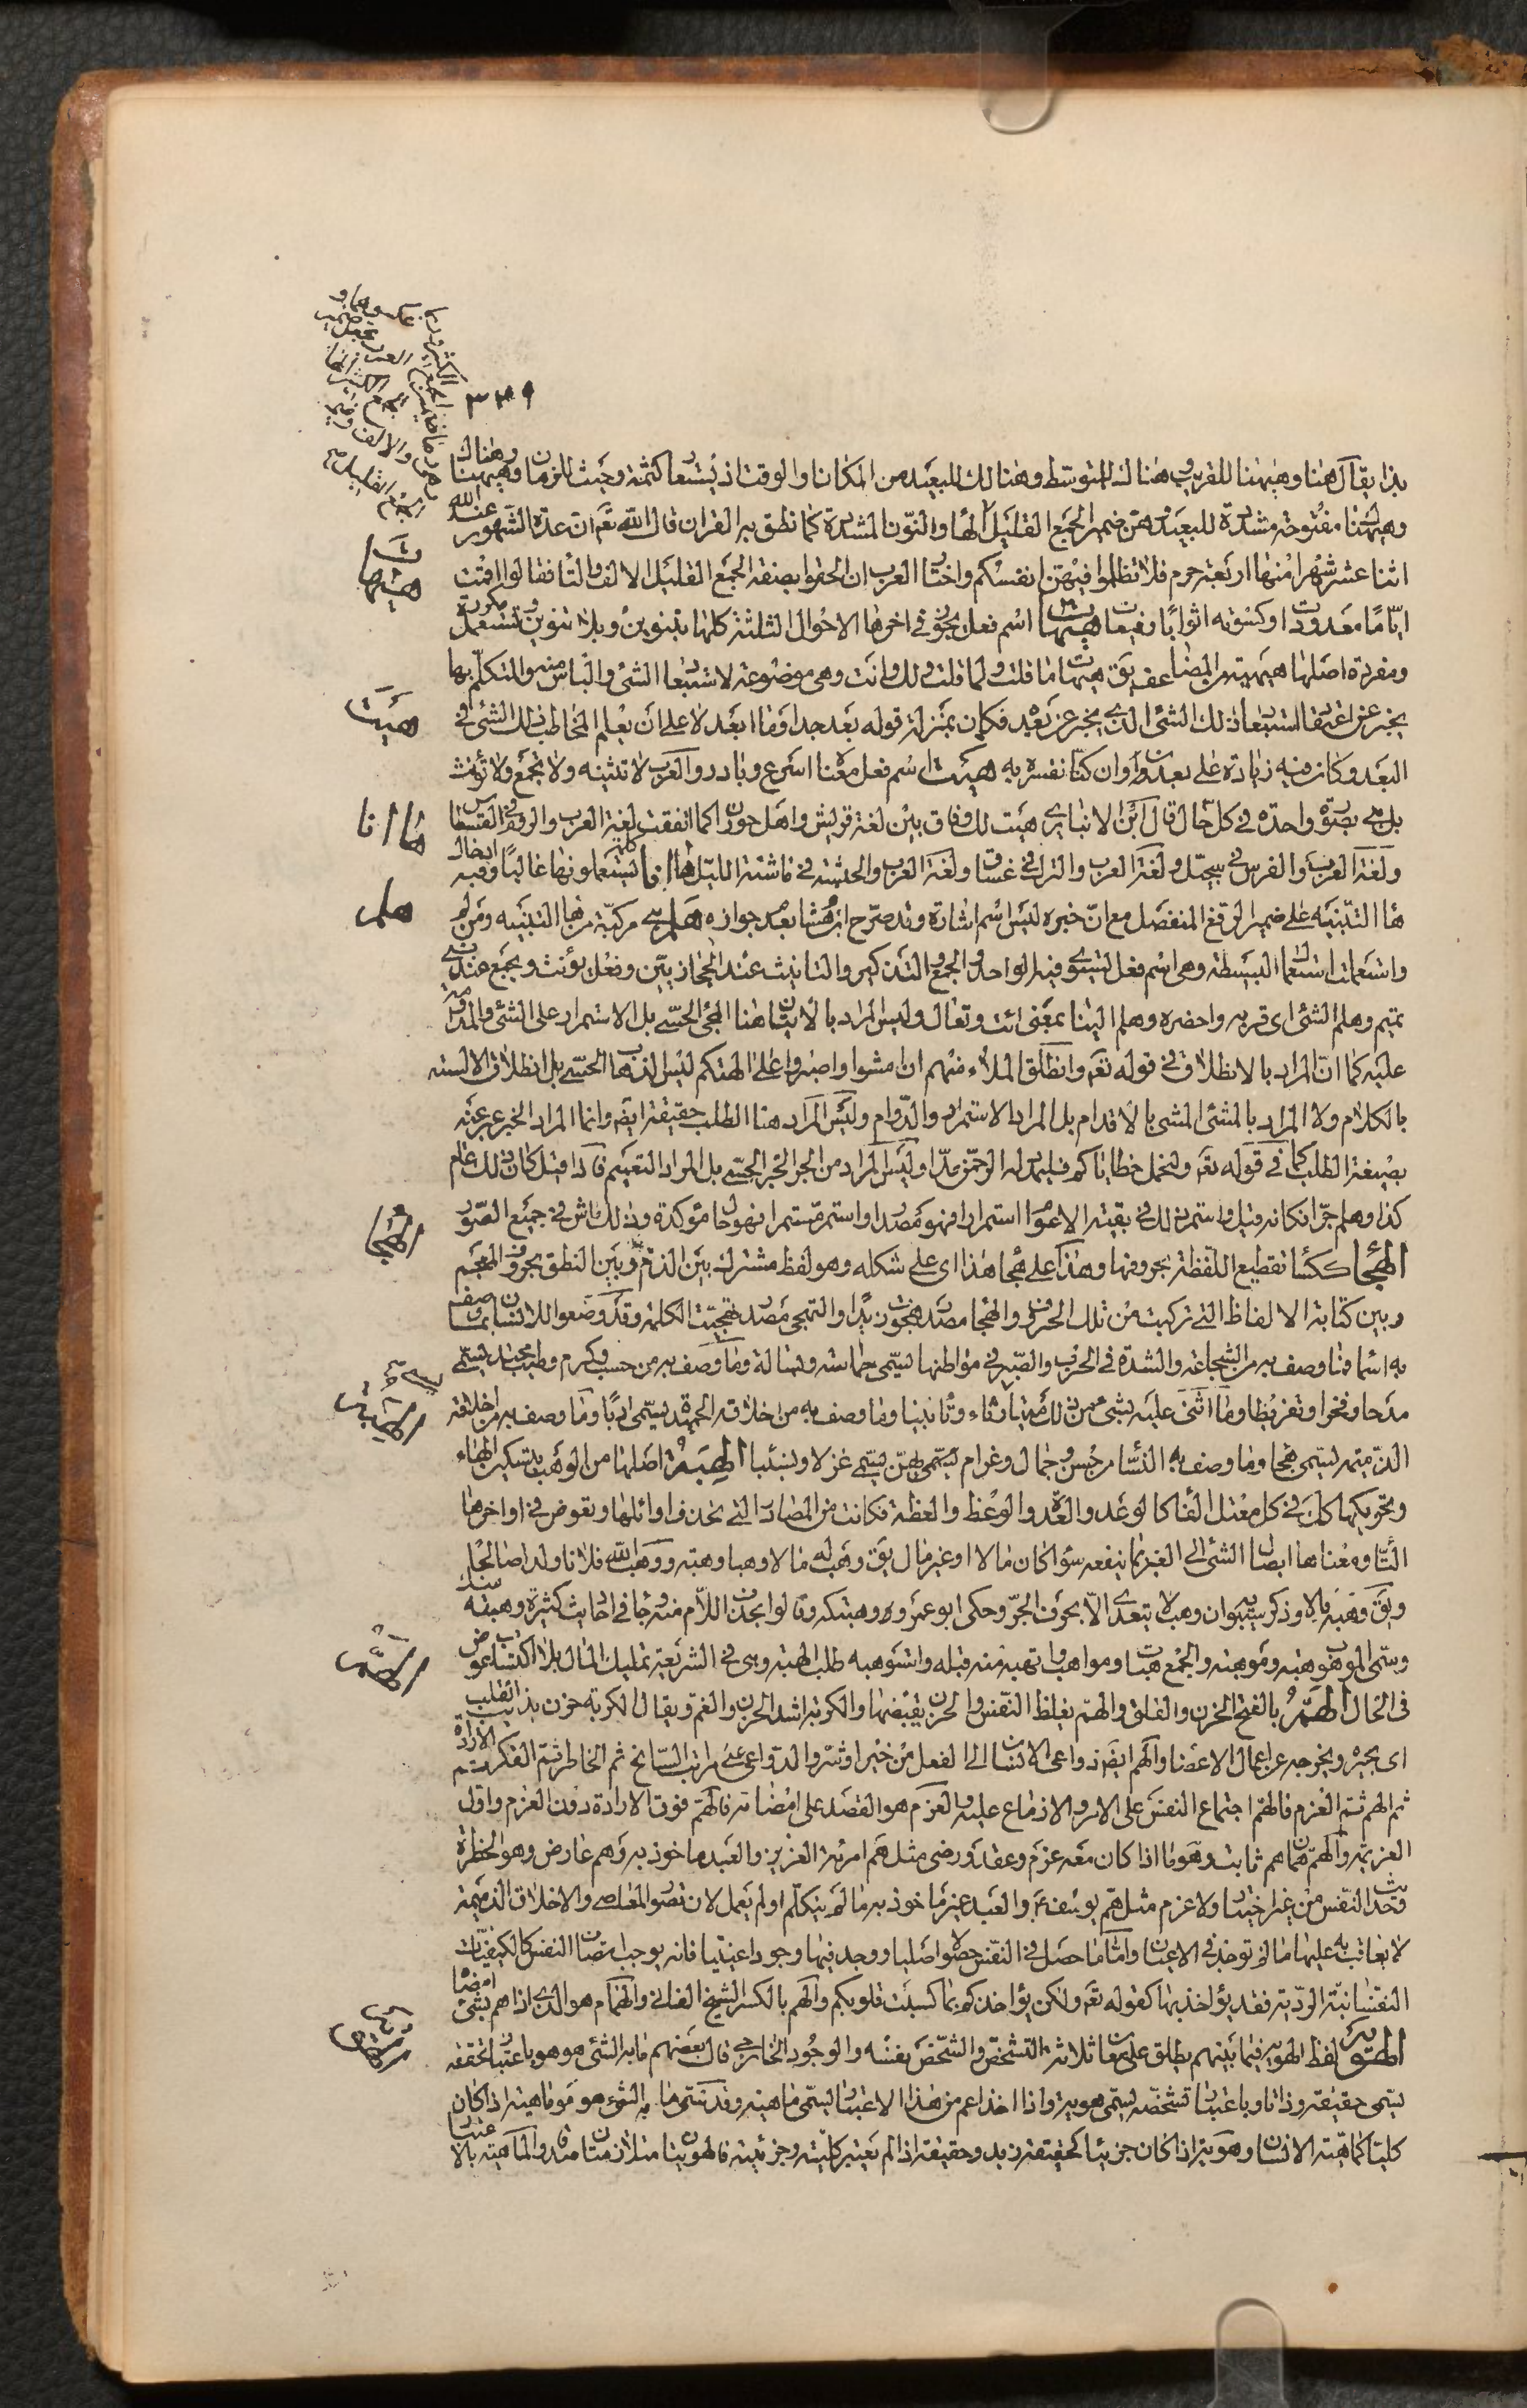 ٣٣٩
بذا يقال هنا وهيهنا للقريب وهنالك للمتوسط وهنالك للبعيد من المكان والوقت اذ يستعار كثمة وحيث للزمان وههنا وهناك
وهيهنا مفتوحة مشددة للبعيد هن ضمير الجمع القليل الهاء والنون المشددة كما نطق به القران قال الله تعم ان عدة الشهور عند الله
اثنا عشر شهرا منها اربعة حرم فلا تظلموا فيهن انفسكم واختار العرب ان الحقوا بصفة الجمع القليل الالف والتا فقالوا اقمت
اياما معدودات وكسوته اثوابا رفيعات هيهات اسم فعل يجوز في اخرها الاحوال الثلثة كلها بتنوين وبلا تنوين وتستعمل مكررة
ومفردة اصلها هيهية من المضاعف يق هيهات ما قلت ولما قلت ولك وانت وهي موضوعة لاستبعاد الشئ والياس منه والمتكلم بها
يخبر عن اعتقاد استبعاد ذلك الشئ الذي يخبر عن بعده فكان بمنزلة قوله بعد جدا وما ابعد لا على ان يعلم المخاطب ذلك الشئ في
البعد وكان فيه زيادة على بعد وان كنا نفسره به هيت اسم فعل معناه اسرع وبادر والعرب لا تثنيه ولا تجمع ولا تؤنث
بل هي بصورة واحدة في كل حال قال ابن الانباري هيت لك وفاق بين لغة قريش واهل حوران كما اتفقت لغة العرب والروم في القسطاس
ولغة العرب والفرس في سجيل ولغة العرب والترك في غساق ولغة العرب والحبشة في ناشئة الليل ها انا كلمة يستعملونها غالبا وفيه ادخال
ها التنبيه على ضمير الرفع المنفصل مع ان خبره ليس اسم اشارة وقد صرح ابن هشام بعدم جوازه هلم هي مركبة من ها التنبيه ومن لم
واستعملت استعمال البسيطة وهي اسم فعل يستوي فيه الواحد والجمع والتذكير والتانيث عند الحجازيين وفعل يؤنث ويجمع عند بني
تميم وهلم الشئ اي قربه واحضره وهلم الينا بمعنى ائت وتعال وليس المراد بالاتيان ههنا المجئ الحسي بل الاستمرار على الشئ والمداومة
عليه كما ان المراد بالانطلاق في قوله تعم وانطلق الملاء منهم ان امشوا واصبروا على الهتكم ليس الذهاب الحسي بل انطلاق الالسنة
بالكلام ولا المراد بالمشي المشي بالاقدام بل المراد الاستمرار والدوام وليس المراد هنا الطلب حقيقة ايضا وانما المراد الخبر عبر عنه
بصيغة الطلب كما في قوله تعم ولنحمل خطاياكم فليمدد له الرحمن مدا وليس المراد من الجر الجر الحسي بل المراد التعميم فاذا قيل كان ذلك عام
كذا وهلم جرا فكانه قيل واستمر ذلك في بقية الاعوام استمرارا فهو مصدر او استمر مستمرا فهو حال مؤكدة وذلك ماش في جميع الصور
الهجاء ككساء تقطيع اللفظة بحروفها وهذا على هجاء هذا اي على شكله وهو لفظ مشترك بين الذم وبين النطق بحروف المعجم
وبين كتابة الالفاظ التي تركبت من تلك الحروف والهجاء مصدر هجوت زيدا والتهجي مصدر تهجيت الكلمة وقد وضعوا للانسان بما وصف
به اسماء فما وصف به من الشجاعة والشدة في الحرب والصبر في مواطنها يسمى حماسة وبسالة وما وصف به من حسب وكرم وطيب محتد يسمى
مدحا وفخرا وتقريظا وما اثنى عليه بشئ من ذلك ميتا رثاء وتابينا وما وصف به من اخلاقه الحميدة يسمى ادبا وما وصف به من اخلاقه
الذميمة يسمى هجاء وما وصف به النساء من حسن وجمال وغرام بهن يسمى غزلا ونسيبا الهبة اصلها من الوهب بتسكين الهاء
وتحريكها كذلك في كل معتل الفاء كالوعد والعدة والوعظ والعظة فكانت من المصادر التي تحذف اوائلها وتعوض في اواخرها
التاء ومعناها ايصال الشئ الى الغير بما ينفعه سواء كان مالا او غير مال يق وهب له مالا وهبا وهبة ووهب الله فلانا ولدا صالحا
ويق وهبه مالا وذكر سيبويه ان وهب لا يتعدى الا بحرف الجر وحكى ابو عمرو وهبتكه وقالوا بحذف اللام منه جاء في احاديث كثيرة وهبته منك
وسمى الموهوب هبة وموهبة والجمع هبات ومواهب واتهبه منه قبله واستوهبه طلب الهبة وهي في الشريعة تمليك المال بلا اكتساب عوض
في الحال الهم بالفتح الحزن والقلق والهم يغلظ النفس والحزن يقبضها والكربة اشد الحزن والغم ويقال الكربة حزن يذيب القلب
اي يحيره ويخرجه عن اعمال الاعضاء والهم ايضا دواعي الانسان الى الفعل من خير او شر والدواعي على مراتب السانح ثم الخاطر ثم الفكر ثم الارادة
ثم الهم ثم العزم فالهم اجتماع النفس على الامر والازماع عليه والعزم هو القصد على امضائه فالهم فوق الارادة دون العزم واول
العزيمة والهم همان هم ثابت وهو ما اذا كان معه عزم وعقد ورضى مثل هم امرئة العزيز والعبد ماخوذ به وهم عارض وهو الخطرة
وحديث النفس من غير اختيار ولا عزم مثل هم يوسف ع والعبد غير ماخوذ به ما لم يتكلم او لم يعمل لان تصور المعاصي والاخلاق الذميمة
لا يعاقب به عليها ما لم توجد في الاعيان واما ما حصل في النفس حصولا اصليا ووجد فيها وجودا عينيا فانه يوجب اتصاف النفس كالكيفيات
النفسانية الردية فقد يؤاخذ بها كقوله تعم ولكن يؤاخذكم بما كسبت قلوبكم والهم بالكسر الشيخ الفاني والهمام هو الذي اذا هم بشئ امضاه
الهوية لفظ الهوية فيما بينهم يطلق على معان ثلاثة التشخص والشخص نفسه والوجود الخارجي قال بعضهم ما به الشئ هو هو باعتبار تحققه
يسمى حقيقة وذاتا وباعتبار تشخصه يسمى هوية واذا اخذ اعم من هذا الاعتبار يسمى ماهية وقد يسمى ما به الشئ هو هو ماهية اذا كان
كليا كماهية الانسان وهوية اذا كان جزئيا كحقيقة زيد وحقيقة اذا لم يعتبر كليته وجزئيته فالهويتان متلازمتان صدقا والماهية بالاعتبار
هيهات
هيت
ها انا
هلم
الهجاء
الهبة
الهم
الهوية